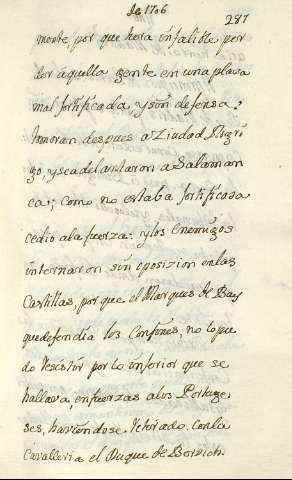 de 1706
287
monte, por que hera infalible per
der aquella gente en una plaza
mal fortificada, y sin defensa,
tomaron despues a Ziudad Rodri
go, y se adelantaron a Salaman
ca; como no estaba fortificada
cedio a la fuerza: y los Enemigos
internaron sin oposizion en las
Castillas, por que el Marques de Bay
que defendia los Confines, no lo pu
do resistir por lo inferior que se
hallava, en fuerzas a los Portugue
ses, haviendose retirado con la
Cavalleria el Duque de Bervich.